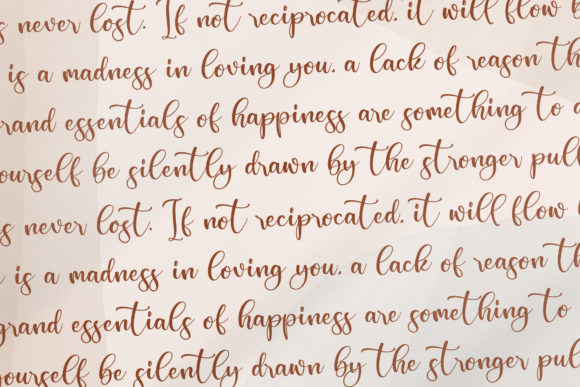 s never lost. If not reciprocated, it will flow
is a madness in loving you. a lack of reason th
grand essentials of happiness are something to
yourself be silently drawn by the stronger pull
s never lost. If not reciprocated, it will flow
is a madness in loving you. a lack of reason th
grand essentials of happiness are something to
yourself be silently drawn by the stronger pul